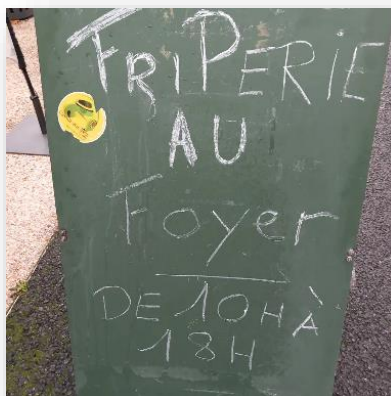 FRIPERIE
AU
Foyer
DE 10H À
18H